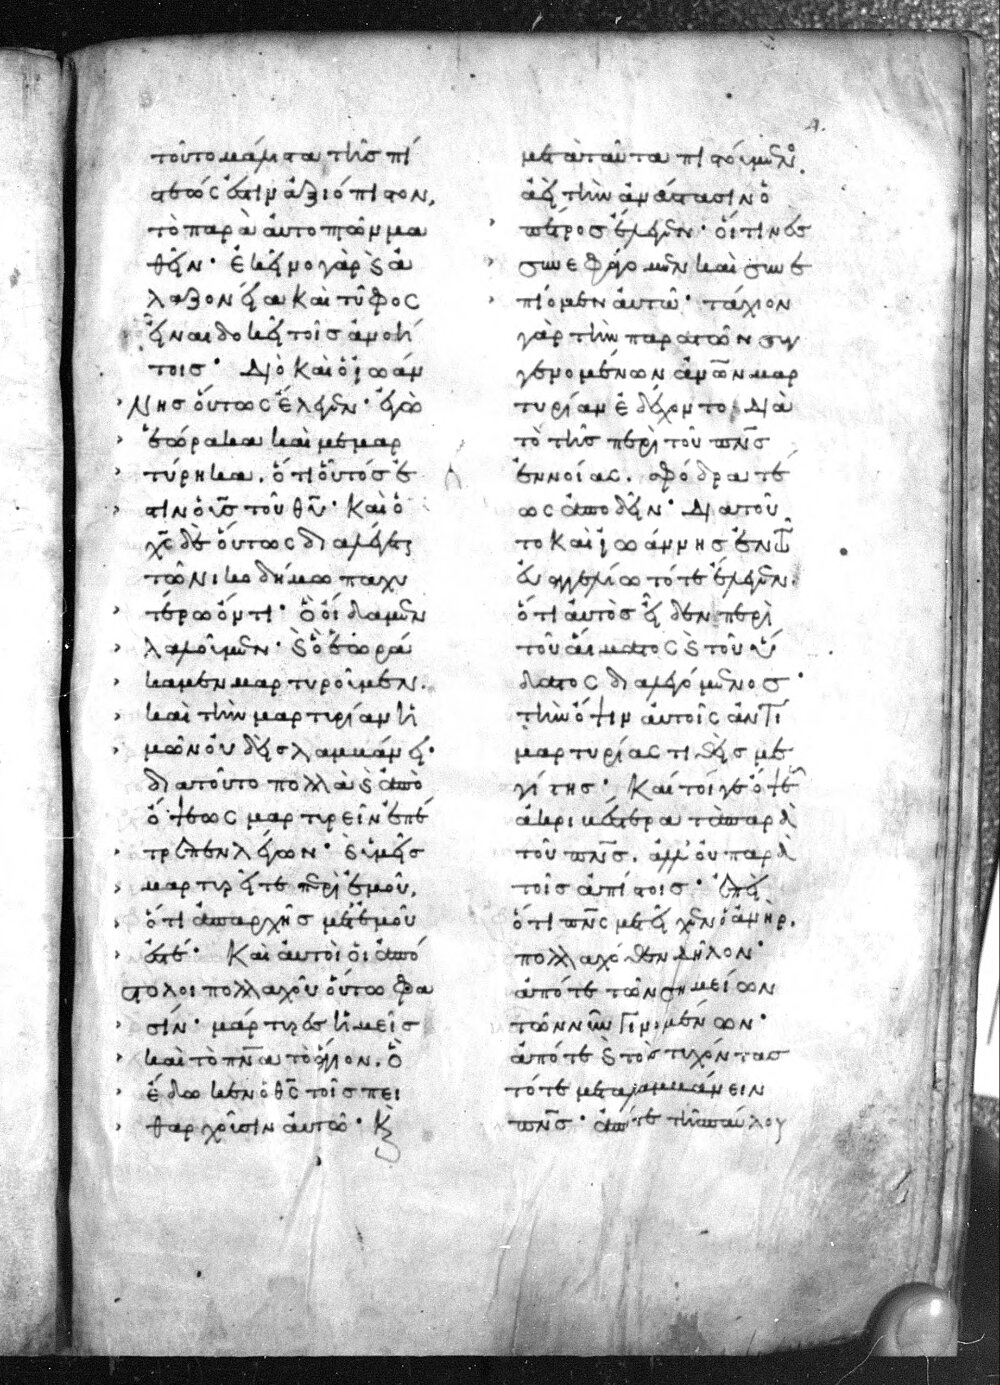 τοῦτο μάλιστα τῆς πί
στεώς ἐστιν ἀξιόπιστον,
τὸ παρὰ αὐτοπτῶν μα
θεῖν· ἐκείνο γὰρ καὶ ἀ
λαζονεία καὶ τύφος
εἶναι δοκεῖ τοῖς ἀνοή
τοις· Διὸ καὶ ὁ ἰωάν
νης οὕτως ἔλεγεν· ἐγὼ
ἑώρακα καὶ μεμαρ
τύρηκα, ὅτι οὗτός ἐ
στιν ὁ υς τοῦ θυ· Καὶ ὁ
χς δὲ οὕτως διαλέγεται
τῶ νικοδήμω παχυ
τέρω ὄντι· ὃ οἴδαμεν
λαλοῦμεν· καὶ ὃ ἑωρά
καμεν μαρτυροῦμεν.
καὶ τὴν μαρτυρίαν ἡ
μῶν οὐδεὶς λαμβάνει·
διατοῦτο πολλὰ καὶ ἀπὸ
ὄψεως μαρτυρεῖν ἐπέ
τρεπεν λέγων· καὶ ὑμεῖς
μαρτυρεῖτε περὶ ἐμοῦ,
ὅτι ἀπαρχῆς μετἐμοῦ
ἐστέ· Καὶ αὐτοὶ οἱ ἀπό
στολοι πολλαχοῦ οὕτω φα
σίν· μάρτυρές ἡμεῖς
καὶ τὸ πνα τὸ ἅγιον, ὃ
ἔδωκεν ὁ θς τοῖς πει
θαρχοῦσιν αὐτῶ· Καὶ
μετὰ ταῦτα πιστούμενος
ἀεὶ τὴν ἀνάστασιν ὁ
πέτρος ἔλεγεν· οἵτινες
συνεφάγομεν καὶ συνε
πίομεν αὐτῶ· τάχιον
γὰρ τὴν παρὰ τῶν συγ
γενομένων αὐτῶ μαρ
τυρίαν ἐδέχοντο, Διὰ
τὸ τῆς περὶ τοῦ πνς
ἐννοίας, σφόδρα τέ
ως ἀποδεῖν· Διατοῦ
το καὶ ἰωάννης ἐν τῶ
εὐαγγελίω τότε ἔλεγεν.
ὅτι αὐτὸς εἶδεν περὶ
τοῦ αἵματος καὶ τοῦ ὕ
δατος διαλεγόμενος·
τὴν ὄψιν αὐτοῖς ἀντὶ
μαρτυρίας τιθεὶς με
γίστης· Καίτοιγε ὄψεως
ἀκριβέστερα τὰ παρὰ
τοῦ πνς, ἀλλ' οὐ παρὰ
τοῖς ἀπίστοις· ἐπεὶ
ὅτι πνς μετεῖχεν ὁ ἀνήρ,
πολλαχόθεν δῆλον·
ἀπό τε τῶν σημείων
τῶν νῦν γινομένων·
ἀπό τε καὶ τὸ τοὺς τυχόντας
τότε μεταλαμβάνειν
πνς· ἀπό τε τῆς παύλου